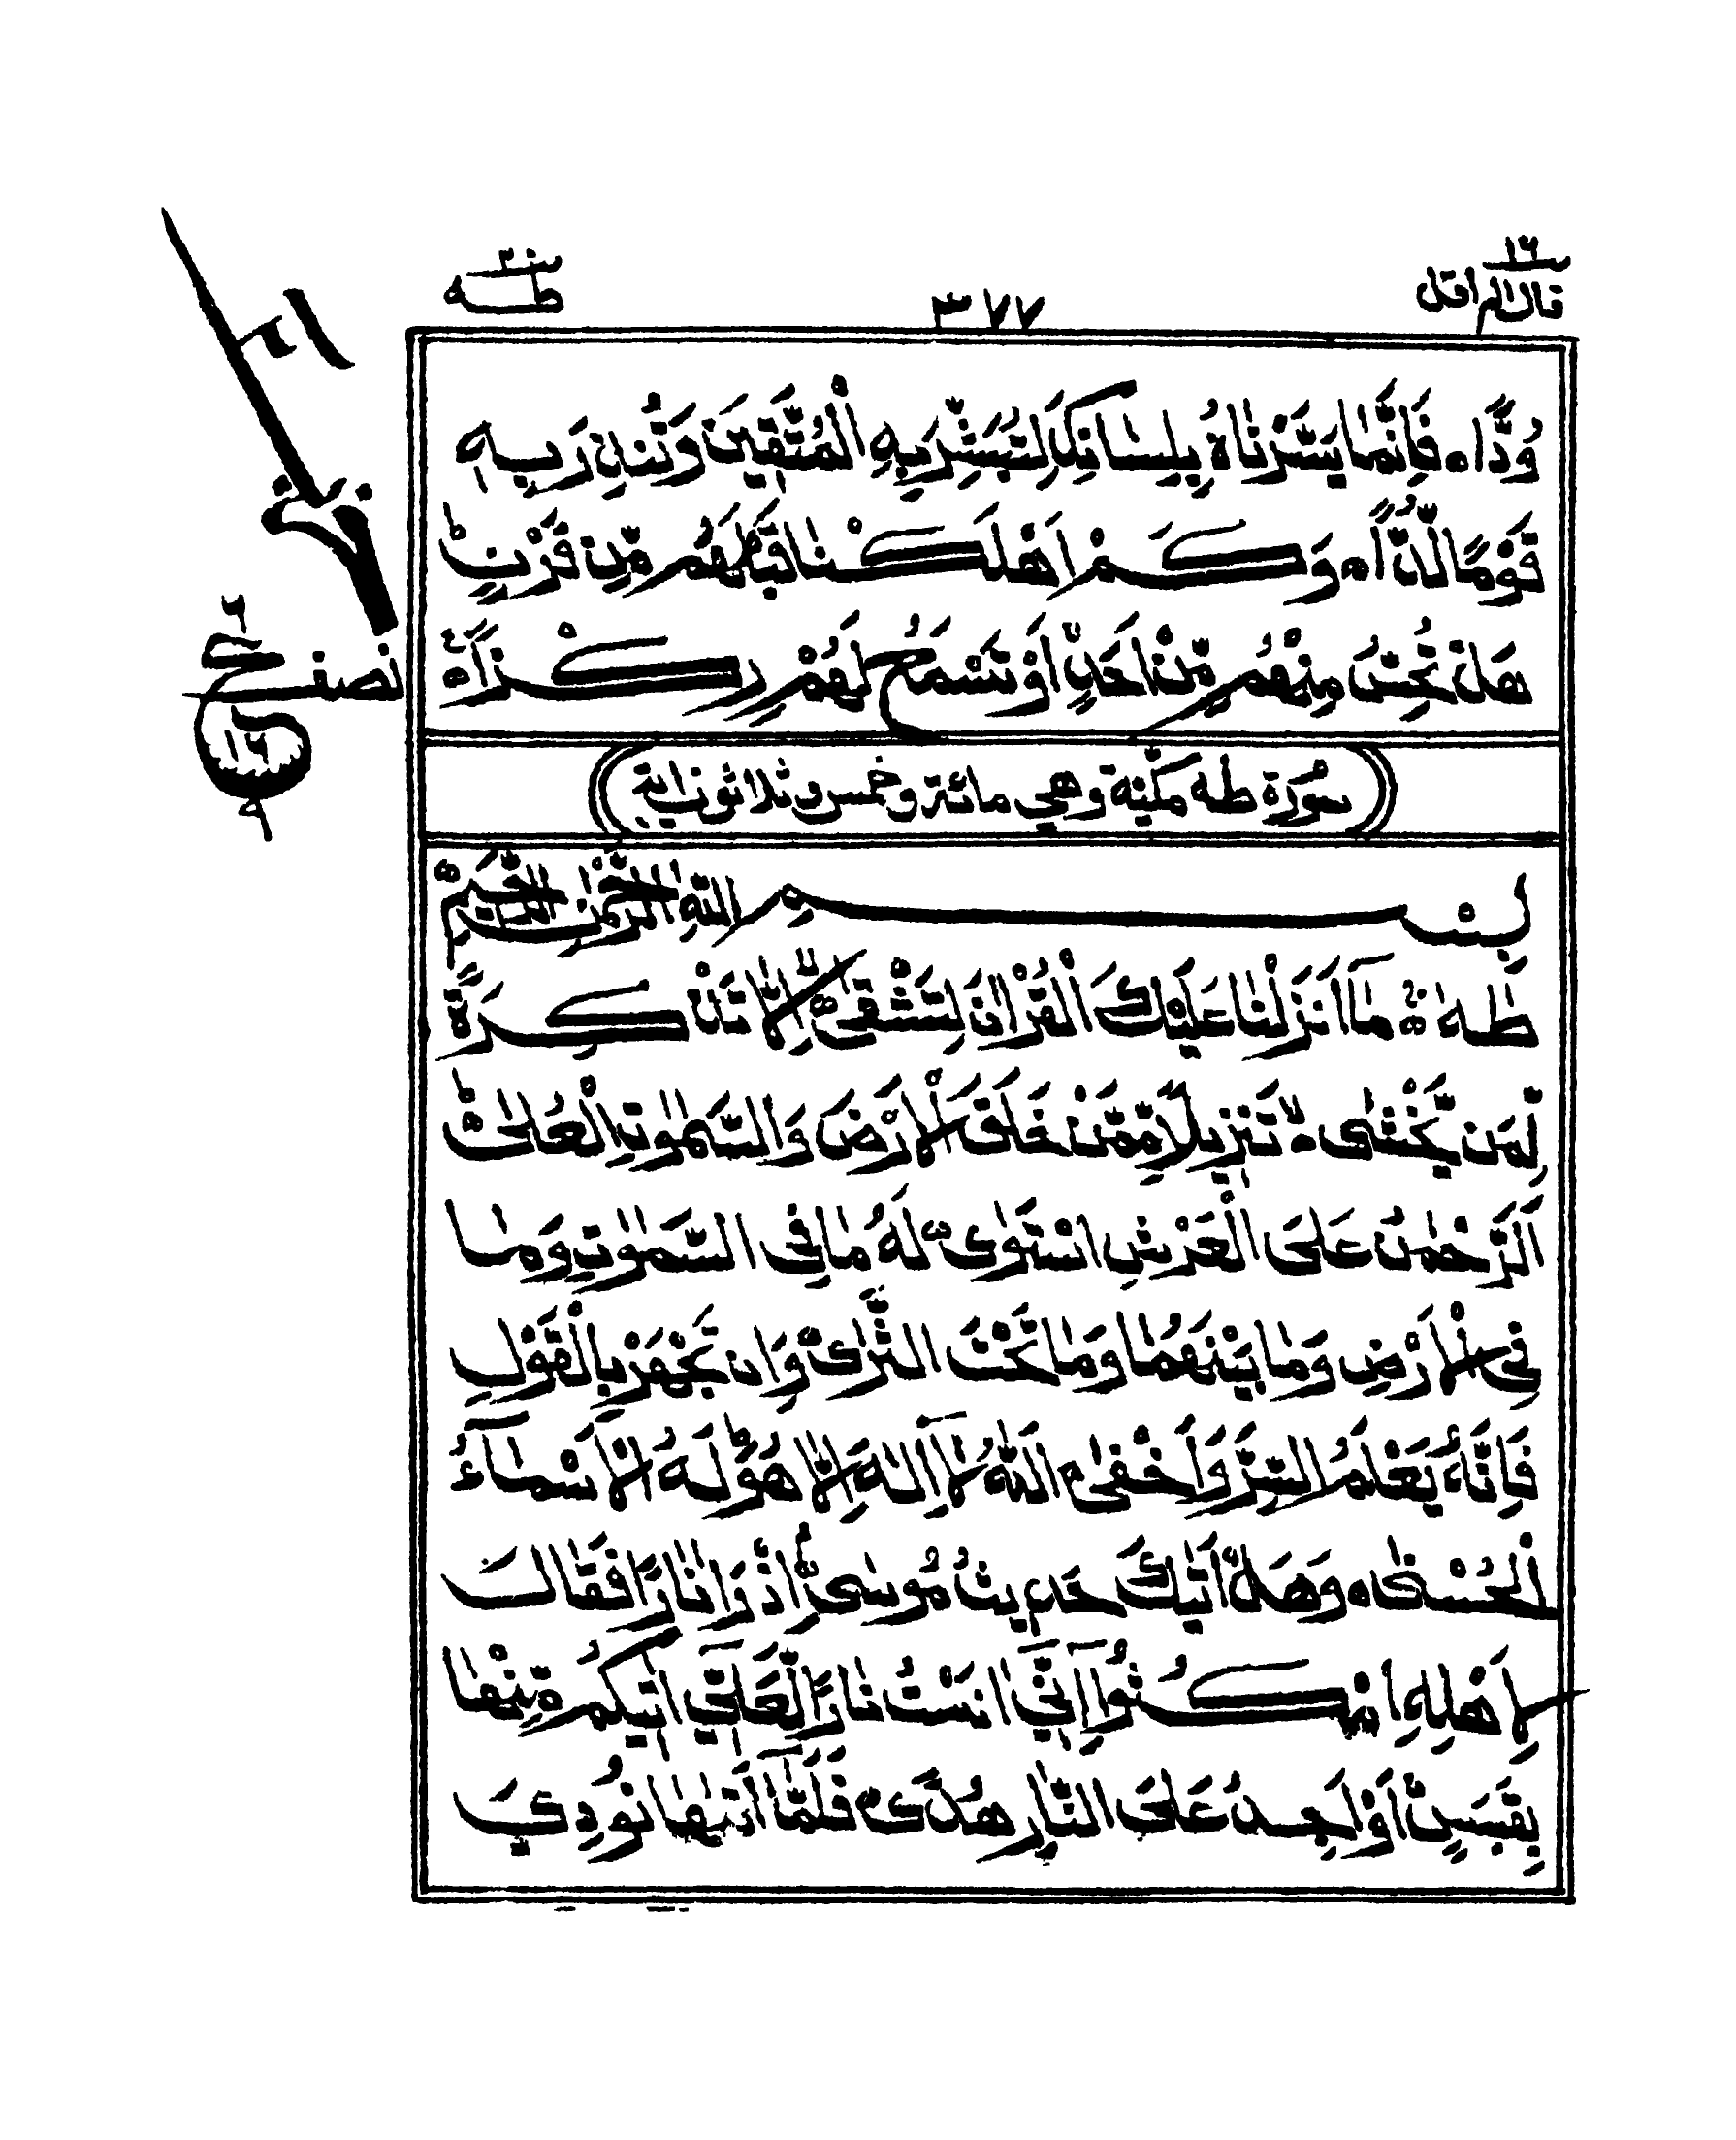 قال الم اقل ١٦
٣٧٧
طه ٢٠
وُدًّا ۝ فَاِنَّمَا يَسَّرْنٰهُ بِلِسَانِكَ لِتُبَشِّرَ بِهِ الْمُتَّقِيْنَ وَتُنْذِرَ بِهٖ
قَوْمًا لُّدًّا ۝ وَكَمْ اَهْلَكْنَا قَبْلَهُمْ مِّنْ قَرْنٍ ؕ
هَلْ تُحِسُّ مِنْهُمْ مِّنْ اَحَدٍ اَوْ تَسْمَعُ لَهُمْ رِكْزًا ۝
سُوْرَة طٰهٰ مَكِّيَّة وهي مائة وخمس وثلاثون اية
بِسْمِ اللّٰهِ الرَّحْمٰنِ الرَّحِيْمِ
طٰهٰ ۝ مَآ اَنْزَلْنَا عَلَيْكَ الْقُرْاٰنَ لِتَشْقٰٓى ۝ اِلَّا تَذْكِرَةً
لِّمَنْ يَّخْشٰى ۝ تَنْزِيْلًا مِّمَّنْ خَلَقَ الْاَرْضَ وَالسَّمٰوٰتِ الْعُلٰى ۝
اَلرَّحْمٰنُ عَلَى الْعَرْشِ اسْتَوٰى ۝ لَهٗ مَا فِى السَّمٰوٰتِ وَمَا
فِى الْاَرْضِ وَمَا بَيْنَهُمَا وَمَا تَحْتَ الثَّرٰى ۝ وَاِنْ تَجْهَرْ بِالْقَوْلِ
فَاِنَّهٗ يَعْلَمُ السِّرَّ وَاَخْفٰى ۝ اَللّٰهُ لَآ اِلٰهَ اِلَّا هُوَ ؕ لَهُ الْاَسْمَآءُ
الْحُسْنٰى ۝ وَهَلْ اَتٰىكَ حَدِيْثُ مُوْسٰى ۝ اِذْ رَاٰ نَارًا فَقَالَ
لِاَهْلِهِ امْكُثُوْٓا اِنِّيْٓ اٰنَسْتُ نَارًا لَّعَلِّيْٓ اٰتِيْكُمْ مِّنْهَا
بِقَبَسٍ اَوْ اَجِدُ عَلَى النَّارِ هُدًى ۝ فَلَمَّآ اَتٰىهَا نُوْدِيَ
نصف
ع
٦
١٦
٩